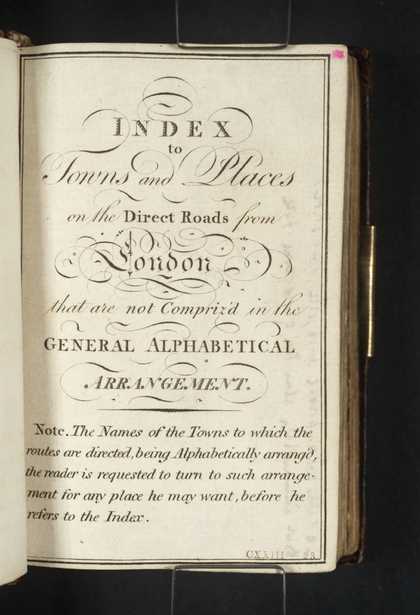 INDEX
to
Towns and Places
on the Direct Roads from
London
that are not Compriz'd in the
GENERAL ALPHABETICAL
ARRANGEMENT.
Note. The Names of the Towns to which the
routes are directed, being Alphabetically arrang'd,
the reader is requested to turn to such arrange-
ment for any place he may want, before he
refers to the Index.
CXXIII